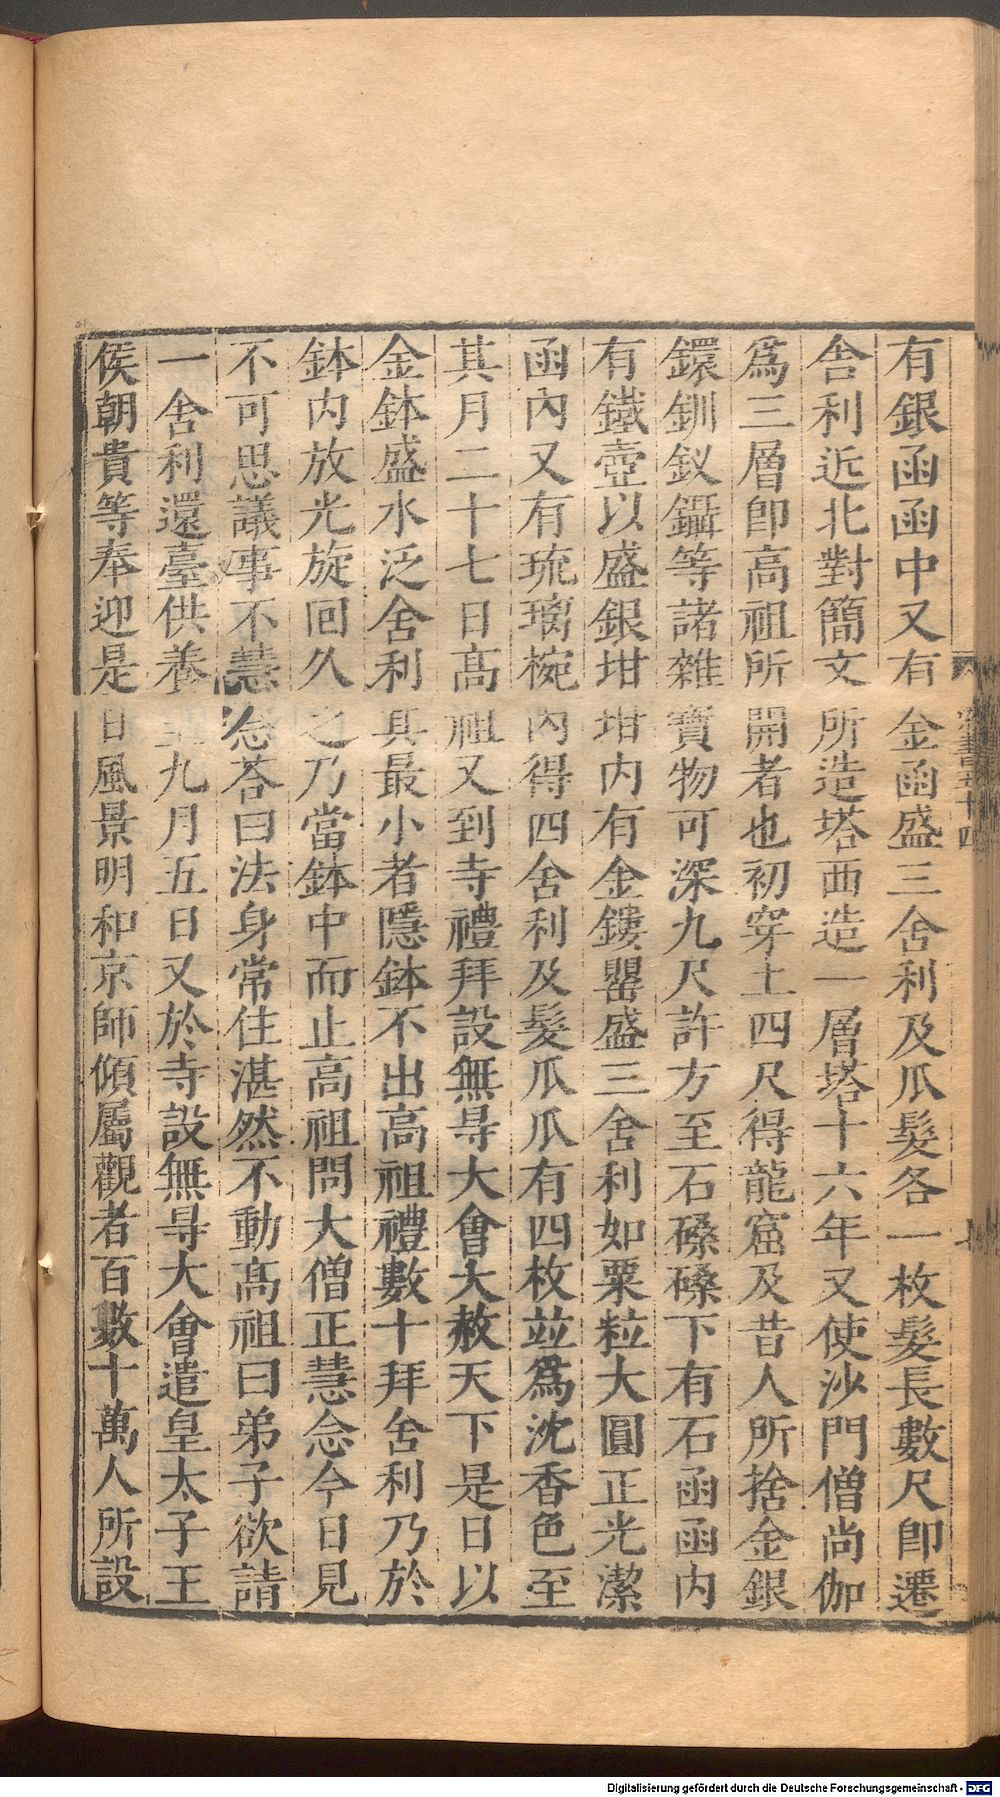 有銀函函中又有金函盛三舍利及爪髮各一枚髮長數尺卽遷
舍利近北對簡文所造塔西造一層塔十六年又使沙門僧尚伽
爲三層卽高祖所開者也初穿土四尺得龍窟及昔人所捨金銀
鐶釧釵鑷等諸雜寶物可深九尺許方至石磉磉下有石函函内
有鐵壺以盛銀坩坩内有金鏤罌盛三舍利如粟粒大圓正光潔
函内又有琉璃椀内得四舍利及髮爪爪有四枚並爲沈香色至
其月二十七日髙祖又到寺禮拜設無㝵大會大赦天下是日以
金鉢盛水泛舍利其最小者隱鉢不出高祖禮數十拜舍利乃於
鉢内放光旋回久之乃當鉢中而止高祖問大僧正慧念今日見
不可思議事不慧念荅曰法身常住湛然不動髙祖曰弟子欲請
一舍利還臺供養九月五日又於寺設無㝵大會遣皇太子王
侯朝貴等奉迎是日風景明和京師傾屬觀者百數十萬人所設
梁書五十四
Digitalisierung gefördert durch die Deutsche Forschungsgemeinschaft - DFG